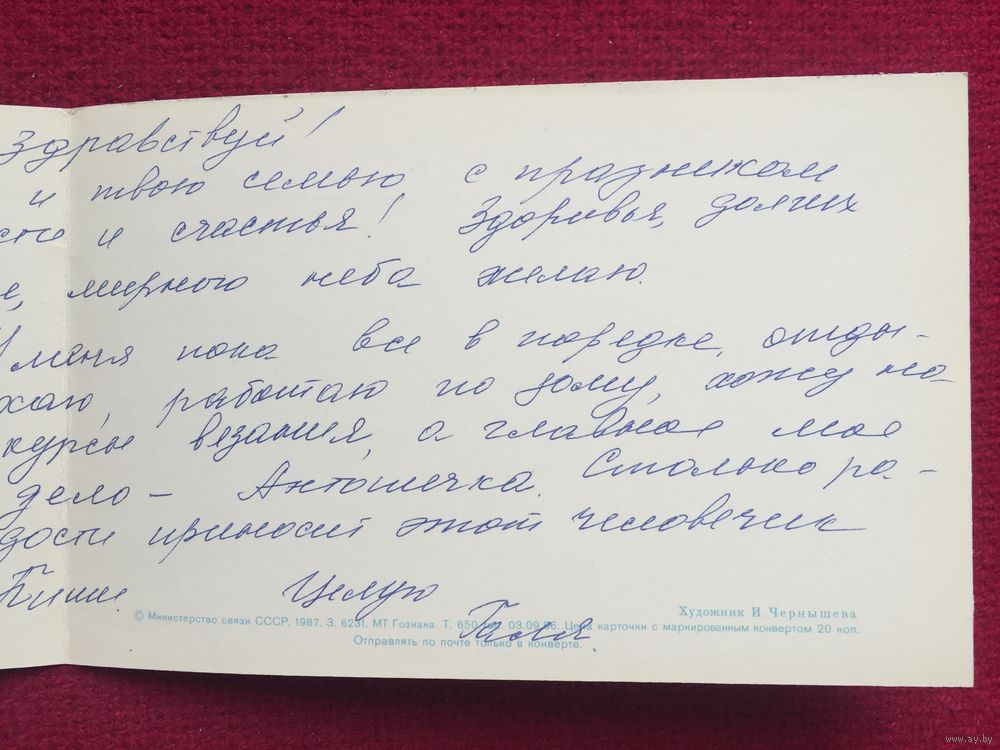 Здравствуй!
и твою семью, с праздником
сти и счастья! Здоровья, долгих
е, мирного неба желаю.
У меня пока все в порядке, отды-
хаю, работаю по дому, хожу на
курсы везания, а главное мое
дело - Антошечка. Столько ра-
дости приносит этот человечик
Пиши. Целую
Галя
Художник И. Чернышева
© Министерство связи СССР, 1987. З. 6231. МТ Гознака. Т. 650 03.09.86. Цена карточки с маркированным конвертом 20 коп.
Отправлять по почте только в конверте.
www.ay.by